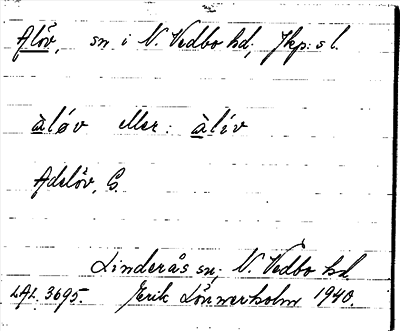 Alöv, sn i N. Vedbo hd, Jkp:s l.
àløv eller: àliv
Adelöv, C.
Linderås sn, N. Vedbo hd.
LAL. 3695. Erik Lönnerholm 1940.